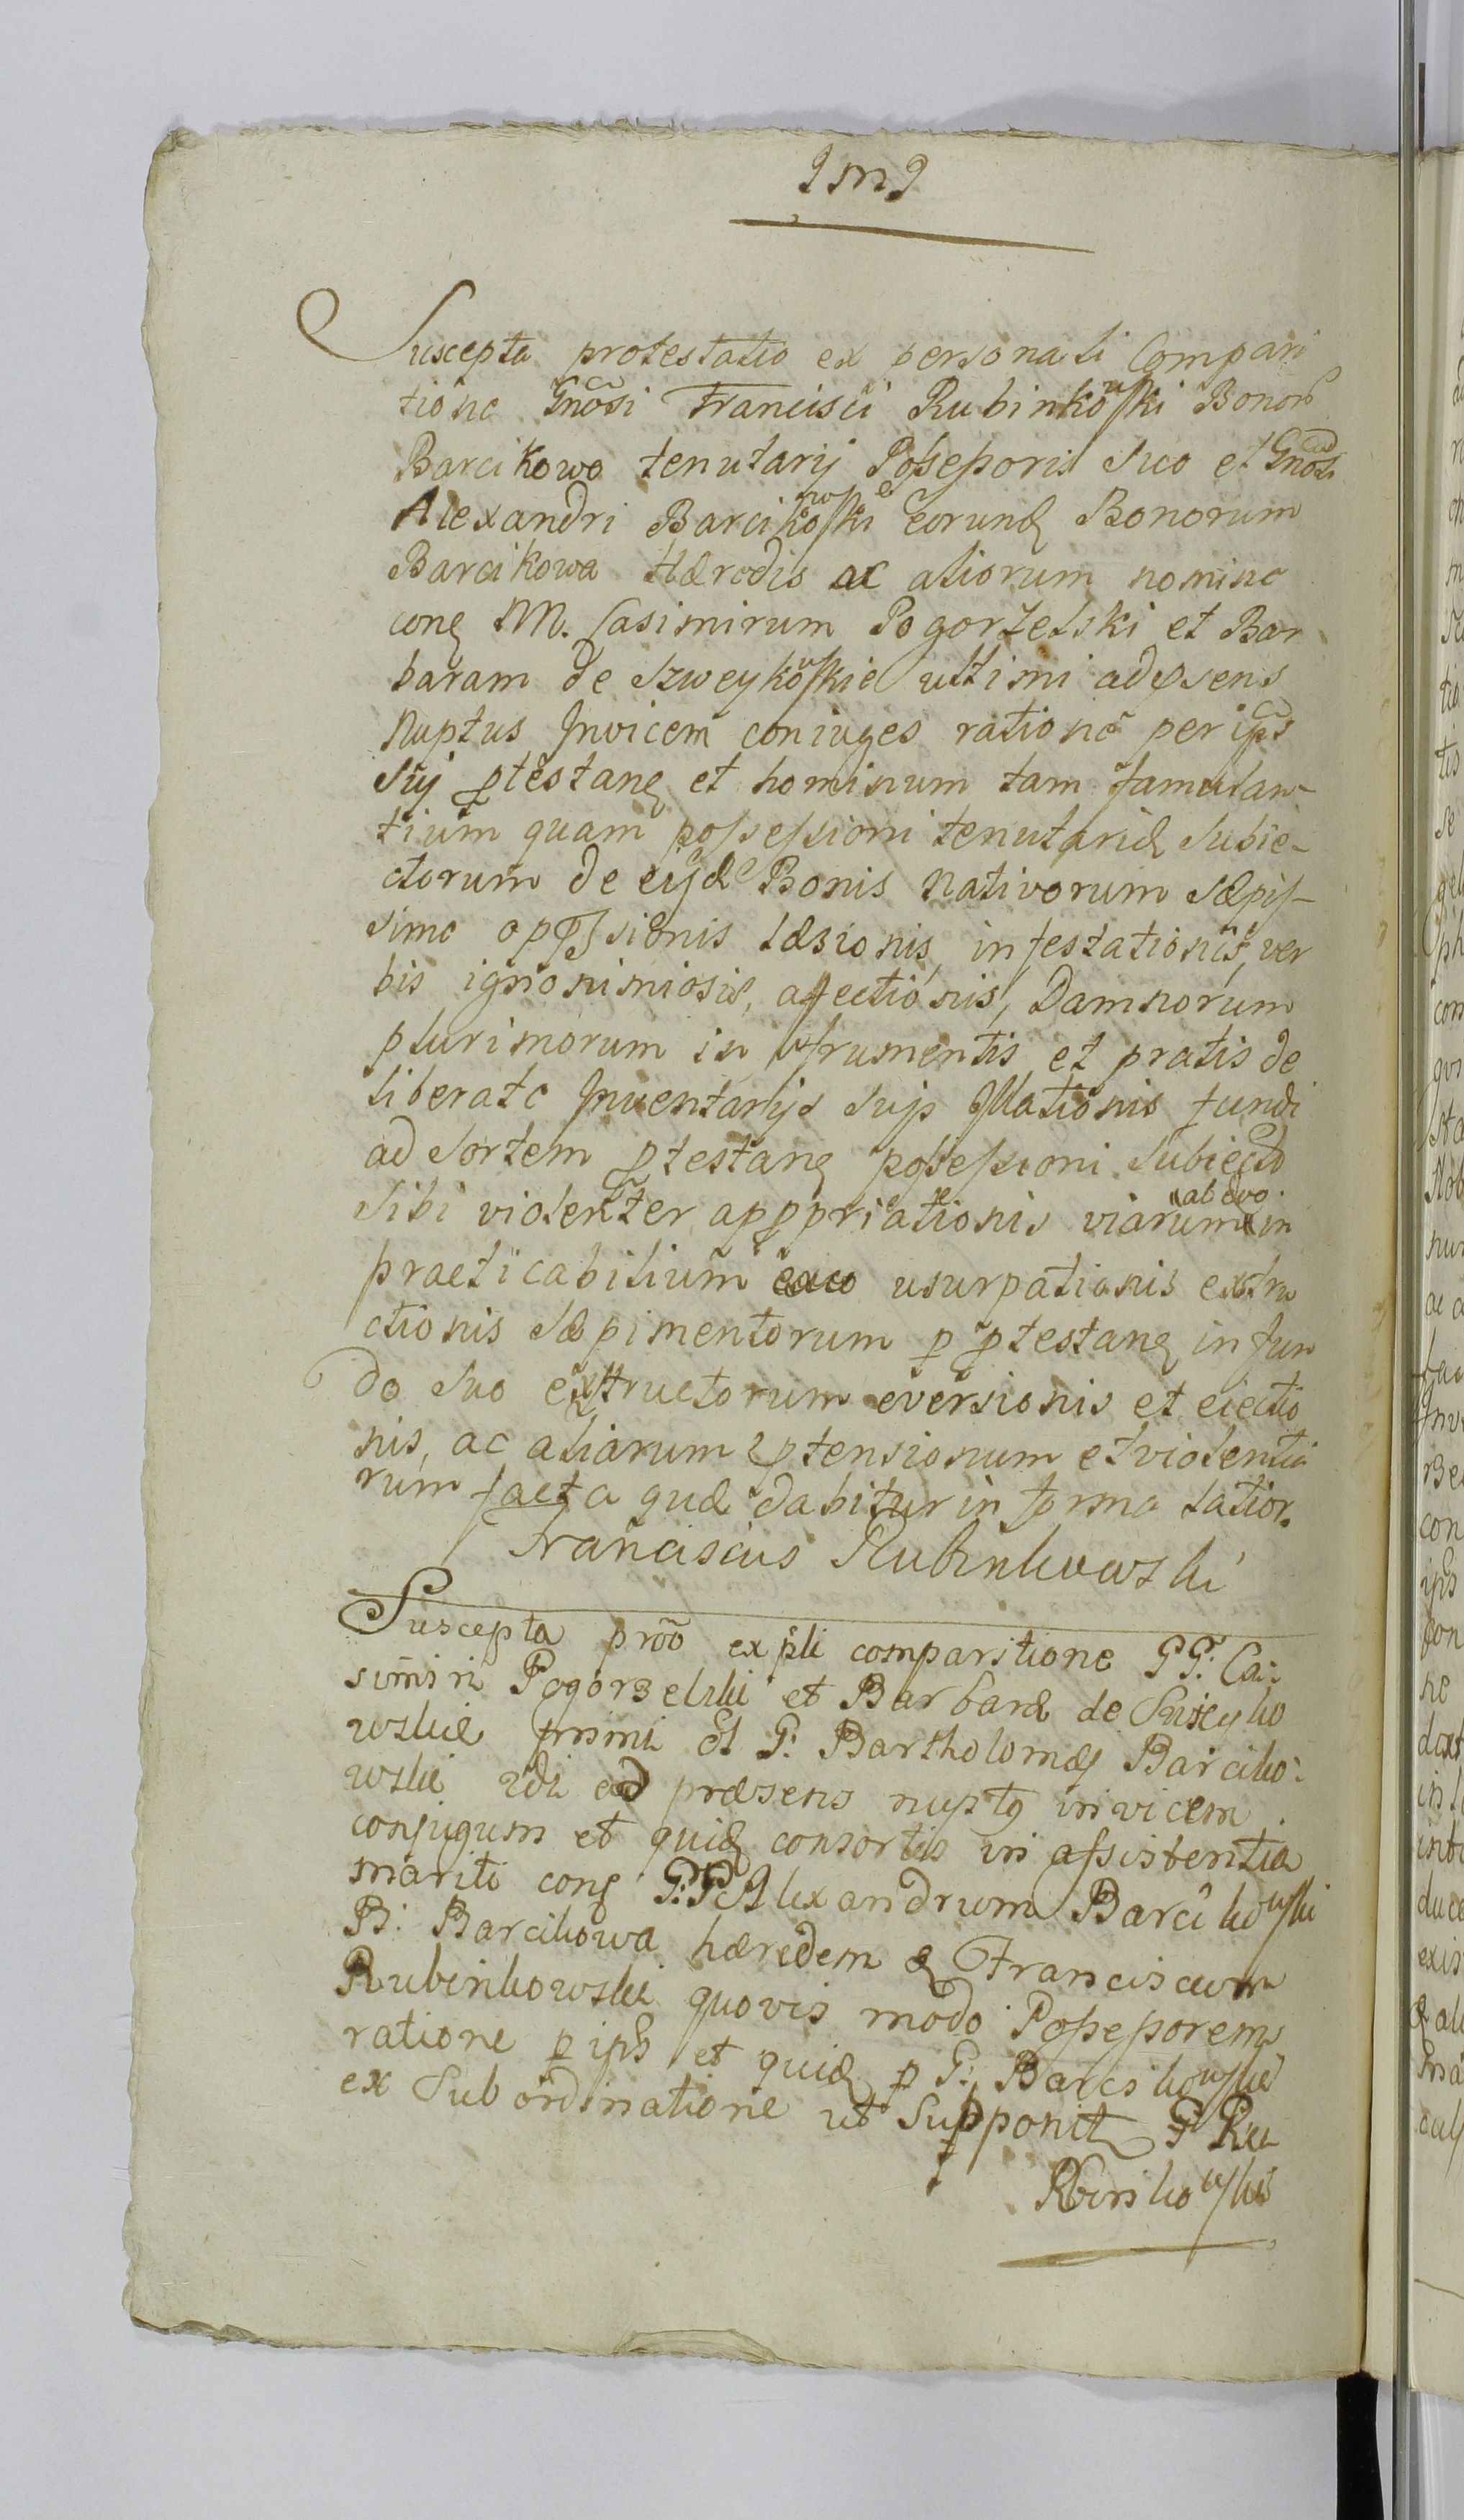 Suscepta protestatio ex personali Compari
tione Gnõsi Francisci Rubinkowski Bonor
Barcikowo tenutarij Possessoris suo et Gnosi
Alexandri Barcikowski eorund Bonorum
Barcikowa Hæredis ac aliorum nomine
conq M. Casimirum Pogorzelski et Bar
baram de Szweykowskie ultimi ad psens
Nuptus Invicem coniuges ratione per ips
sui ptestanq et hominum tam famulan-
tium quam possessioni tenutariæ subie-
ctorum de eijsd Bonis nativorum sæpis-
sime oppssionis læsionis, infestationis, ver
bis ignominiosis, afectionis, Damnorum
plurimorum in frumentis et pratis de
liberate Inventarijs suis Illationis fundi
ad sortem ptestanq possessioni subiecto
sibi violenter appropriationis viarum ab evo in
praeticabilium usurpationis extru
ctionis sæpimentorum p ptestanq in fun
do suo exstructorum eversionis et eiectio
nis, ac aliarum ptensionum et violentia
rum facta quæ dabitur in forma latior.
Franciscus Rubinkowski
Suscepta prõo ex pli comparitione GG. Ca:
simiri Pogorzelski et Barbaræ de Swieyko
wskie primi et G: Bartholomæj Barciko:
wski 2di ad præsens nuptq invicem
conjugum et quid consortis in assistentia
mariti conq G:G Alexandrum Barcikowski
B: Barcikowa hæredem & Franciscum
Rubinkowski quovis modo Possessorem
ratione p ips et quid p G: Barcikowski
ex Sub ordinatione ut supponit G Ru
Rbinkowski